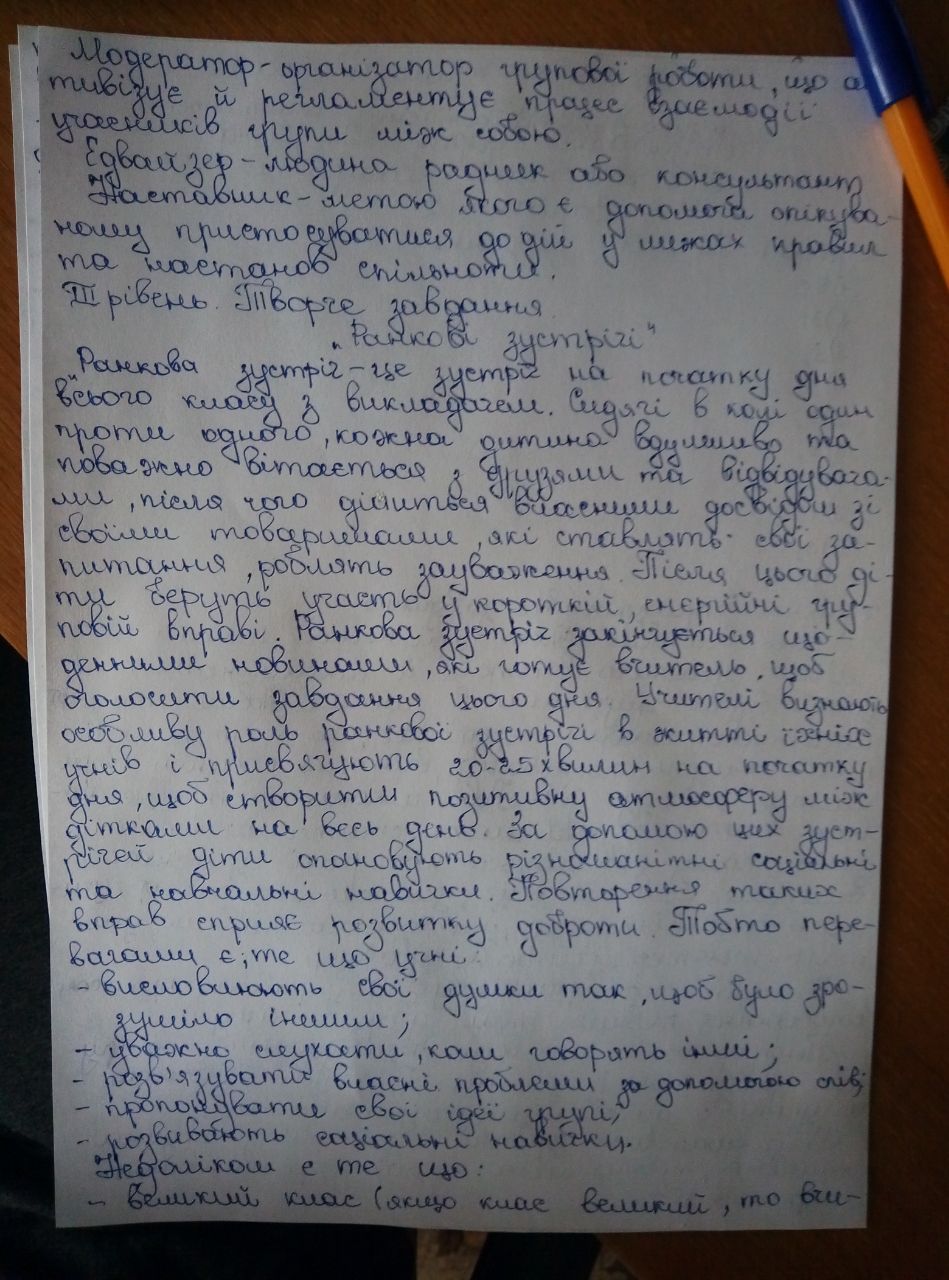 Модератор - організатор групової роботи, що а
тивізує й регламентує процес взаємодії
учасників групи між собою.
Едвайзер - людина радник або консультант
Наставник - метою якого є допомога опікува-
ному пристосуватися до дій у межах правил
та настанов спільноти.
III рівень. Творче завдання
„Ранкові зустрічі"
Ранкова зустріч - це зустріч на початку дня
всього класу з викладачем. Сидячі в колі один
проти одного, кожна дитина вдумливо та
поважно вітається з друзями та відвідувача-
ми, після чого ділиться власним досвідом зі
своїми товаришами, які ставлять свої за-
питання, роблять зауваження. Після цього ді-
ти беруть участь у короткій, енергійні гру-
повій вправі. Ранкова зустріч закінчується що-
денними новинами, які готує вчитель, щоб
оголосити завдання цього дня. Учителі визнають
особливу роль ранкової зустрічі в житті їхніх
учнів і присвячують 20-25 хвилин на початку
дня, щоб створити позитивну атмосферу між
дітками на весь день. За допомою цих зуст-
річей діти опановують різноманітні соціальні
та навчальні навички. Повторення таких
вправ сприяє розвитку доброти. Тобто пере-
вагами є; те що учні:
- висловлюють свої думки так, щоб було зро-
зуміло іншим;
- уважно слухати, коли говорять інші;
- розв'язувати власні проблеми за допомогою спів;
- пропонувати свої ідеї групі;
- розвивають соціальні навички.
Недоліком є те що:
- великий клас (якщо клас великий, то вчи-